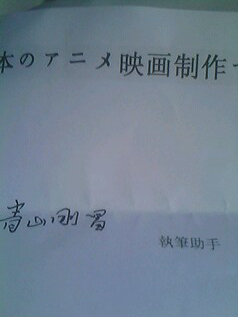 本のアニメ映画制作
青山剛昌
執筆助手